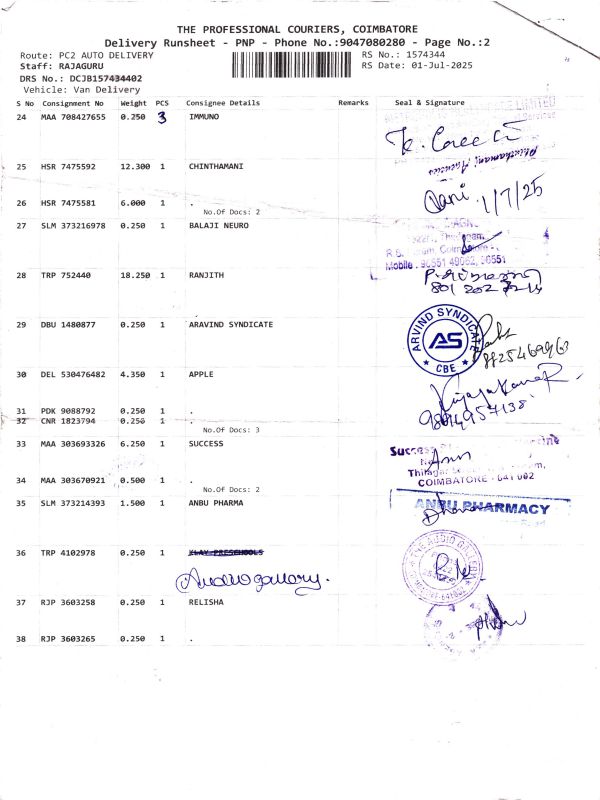 THE PROFESSIONAL COURIERS, COIMBATORE
Delivery Runsheet - PNP - Phone No.:9047080280 - Page No.:2
Route: PC2 AUTO DELIVERY RS No.: 1574344
Staff: RAJAGURU RS Date: 01-Jul-2025
DRS No.: DCJB157434402
Vehicle: Van Delivery
S No Consignment No Weight PCS Consignee Details Remarks Seal & Signature
24 MAA 708427655 0.250 3 IMMUNO
25 HSR 7475592 12.300 1 CHINTHAMANI
Chinthamani Agencies
26 HSR 7475581 6.000 1 .
1/7/25
No.Of Docs: 2
27 SLM 373216978 0.250 1 BALAJI NEURO
28 TRP 752440 18.250 1 RANJITH
29 DBU 1480877 0.250 1 ARAVIND SYNDICATE
ARVIND SYNDICATE
AS
★ CBE ★
30 DEL 530476482 4.350 1 APPLE
31 PDK 9088792 0.250 1 .
32 CNR 1823794 0.250 1 .
No.Of Docs: 3
33 MAA 303693326 6.250 1 SUCCESS
Success
COIMBATORE - 641 002
34 MAA 303670921 0.500 1 .
No.Of Docs: 2
35 SLM 373214393 1.500 1 ANBU PHARMA
ANBU PHARMACY
36 TRP 4102978 0.250 1 KLAY PRESCHOOLS
Audio gallery.
THE AUDIO GALLERY
37 RJP 3603258 0.250 1 RELISHA
38 RJP 3603265 0.250 1 .